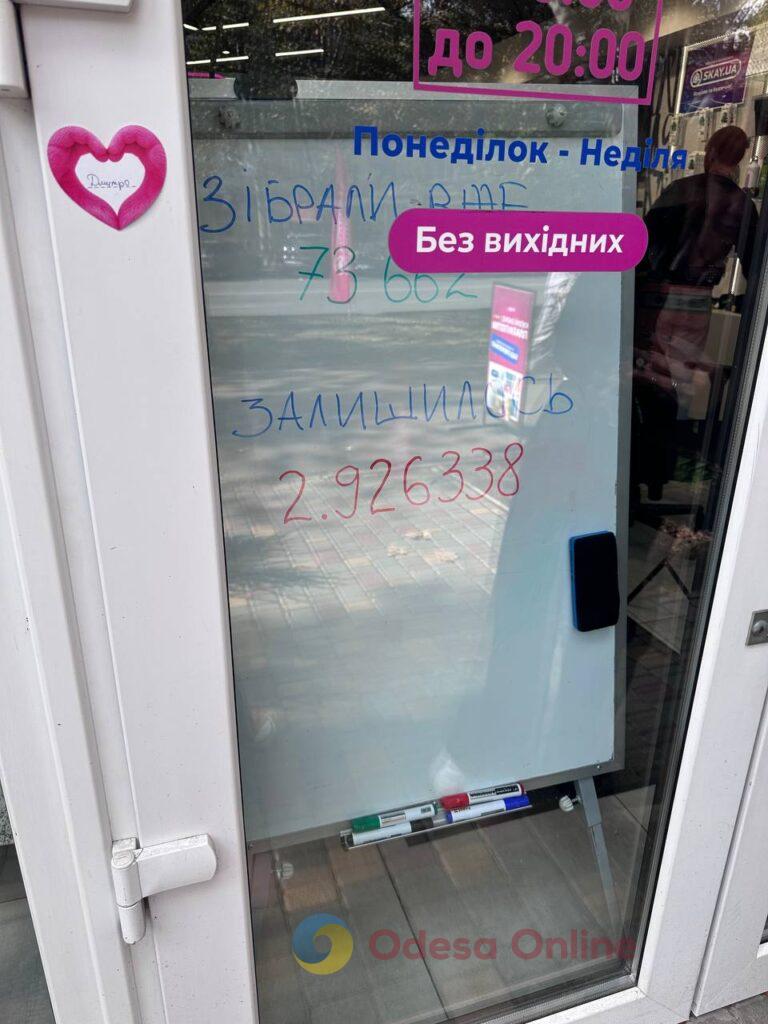 до 20:00
SKAY.UA
Понеділок - Неділя
Дмитро
ЗІБРАЛИ ВЖЕ
Без вихідних
73 662
ЗАЛИШИЛОСЬ
2.926338
Odesa Online